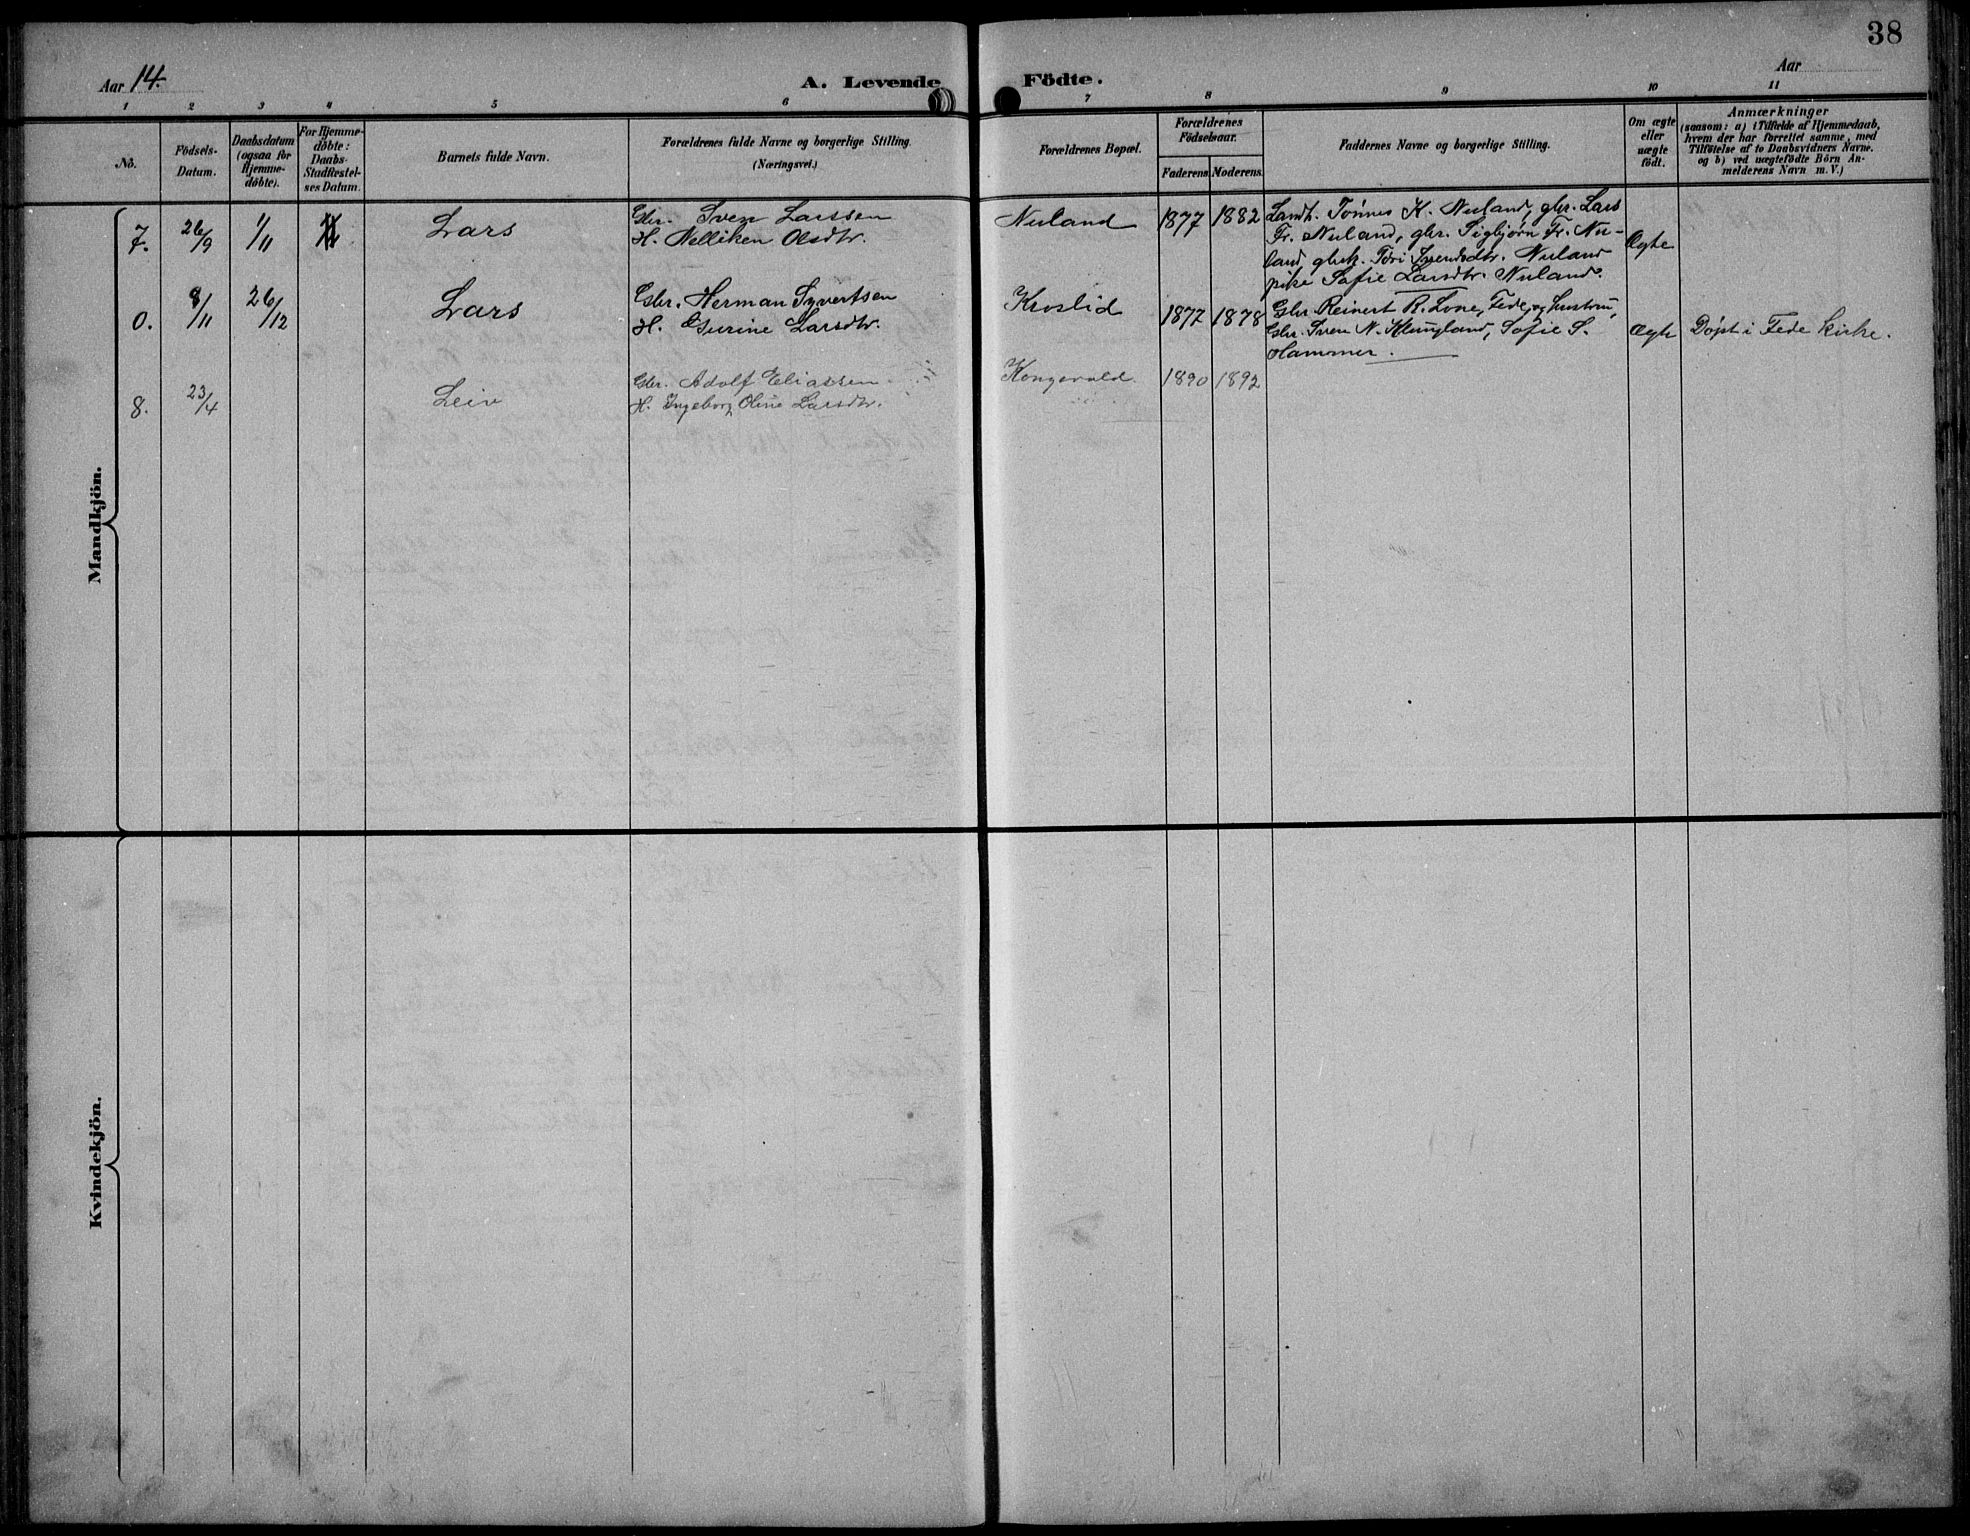 38
Aar 14.
A. Levende Födte.
Aar
1 2 3 4 5 6 7 8 9 10 11
No.
Födsels-
Datum.
Daabsdatum
(ogsaa for
Hjemme-
døbte).
For Hjemme-
døbte:
Daabs-
Stadfæstel-
ses Datum.
Barnets fulde Navn.
Forældrenes fulde Navne og borgerlige Stilling.
(Næringsvei.)
Forældrenes Bopæl.
Forældrenes
Födselsaar.
Faderens Moderens
Faddernes Navne og borgerlige Stilling.
Om ægte
eller
uægte
födt.
Anmærkninger
(saasom: a) i Tilfælde af Hjemmedaab,
hvem der har forrettet samme, med
Tilföielse af to Daabsvidners Navne.
og b) ved uægtefödte Börn An-
melderens Navn m. V.)
Mandkjön.
7. 26/9 1/11
Lars
Gbr. Sven Larssen
H. Nelliken Olsdtr.
Nuland 1877 1882
Landh. Tönnes K. Nuland, gbr. Lars
Fr. Nuland, gbr. Sigbjørn Fr. Nu-
land gbrk. Tori Svendsdtr. Nuland
pike Sofie Larsdtr. Nuland.
Ægte
0. 8/11 26/12
Lars
Gbr. Herman Syvertsen
H. Gurine Larsdtr.
Kroslid 1877 1878
Gbr Reinert R. Lone, Fede, og hustru,
Gbr. Sven N. Klungland, Sofie S.
Hammer.
Ægte
Døpt i Fede kirke.
8. 23/4
Leiv
Gbr. Adolf Eliassen
H. Ingeborg Oline Larsdtr.
Kongevold 1890 1892
Kvindekjön.